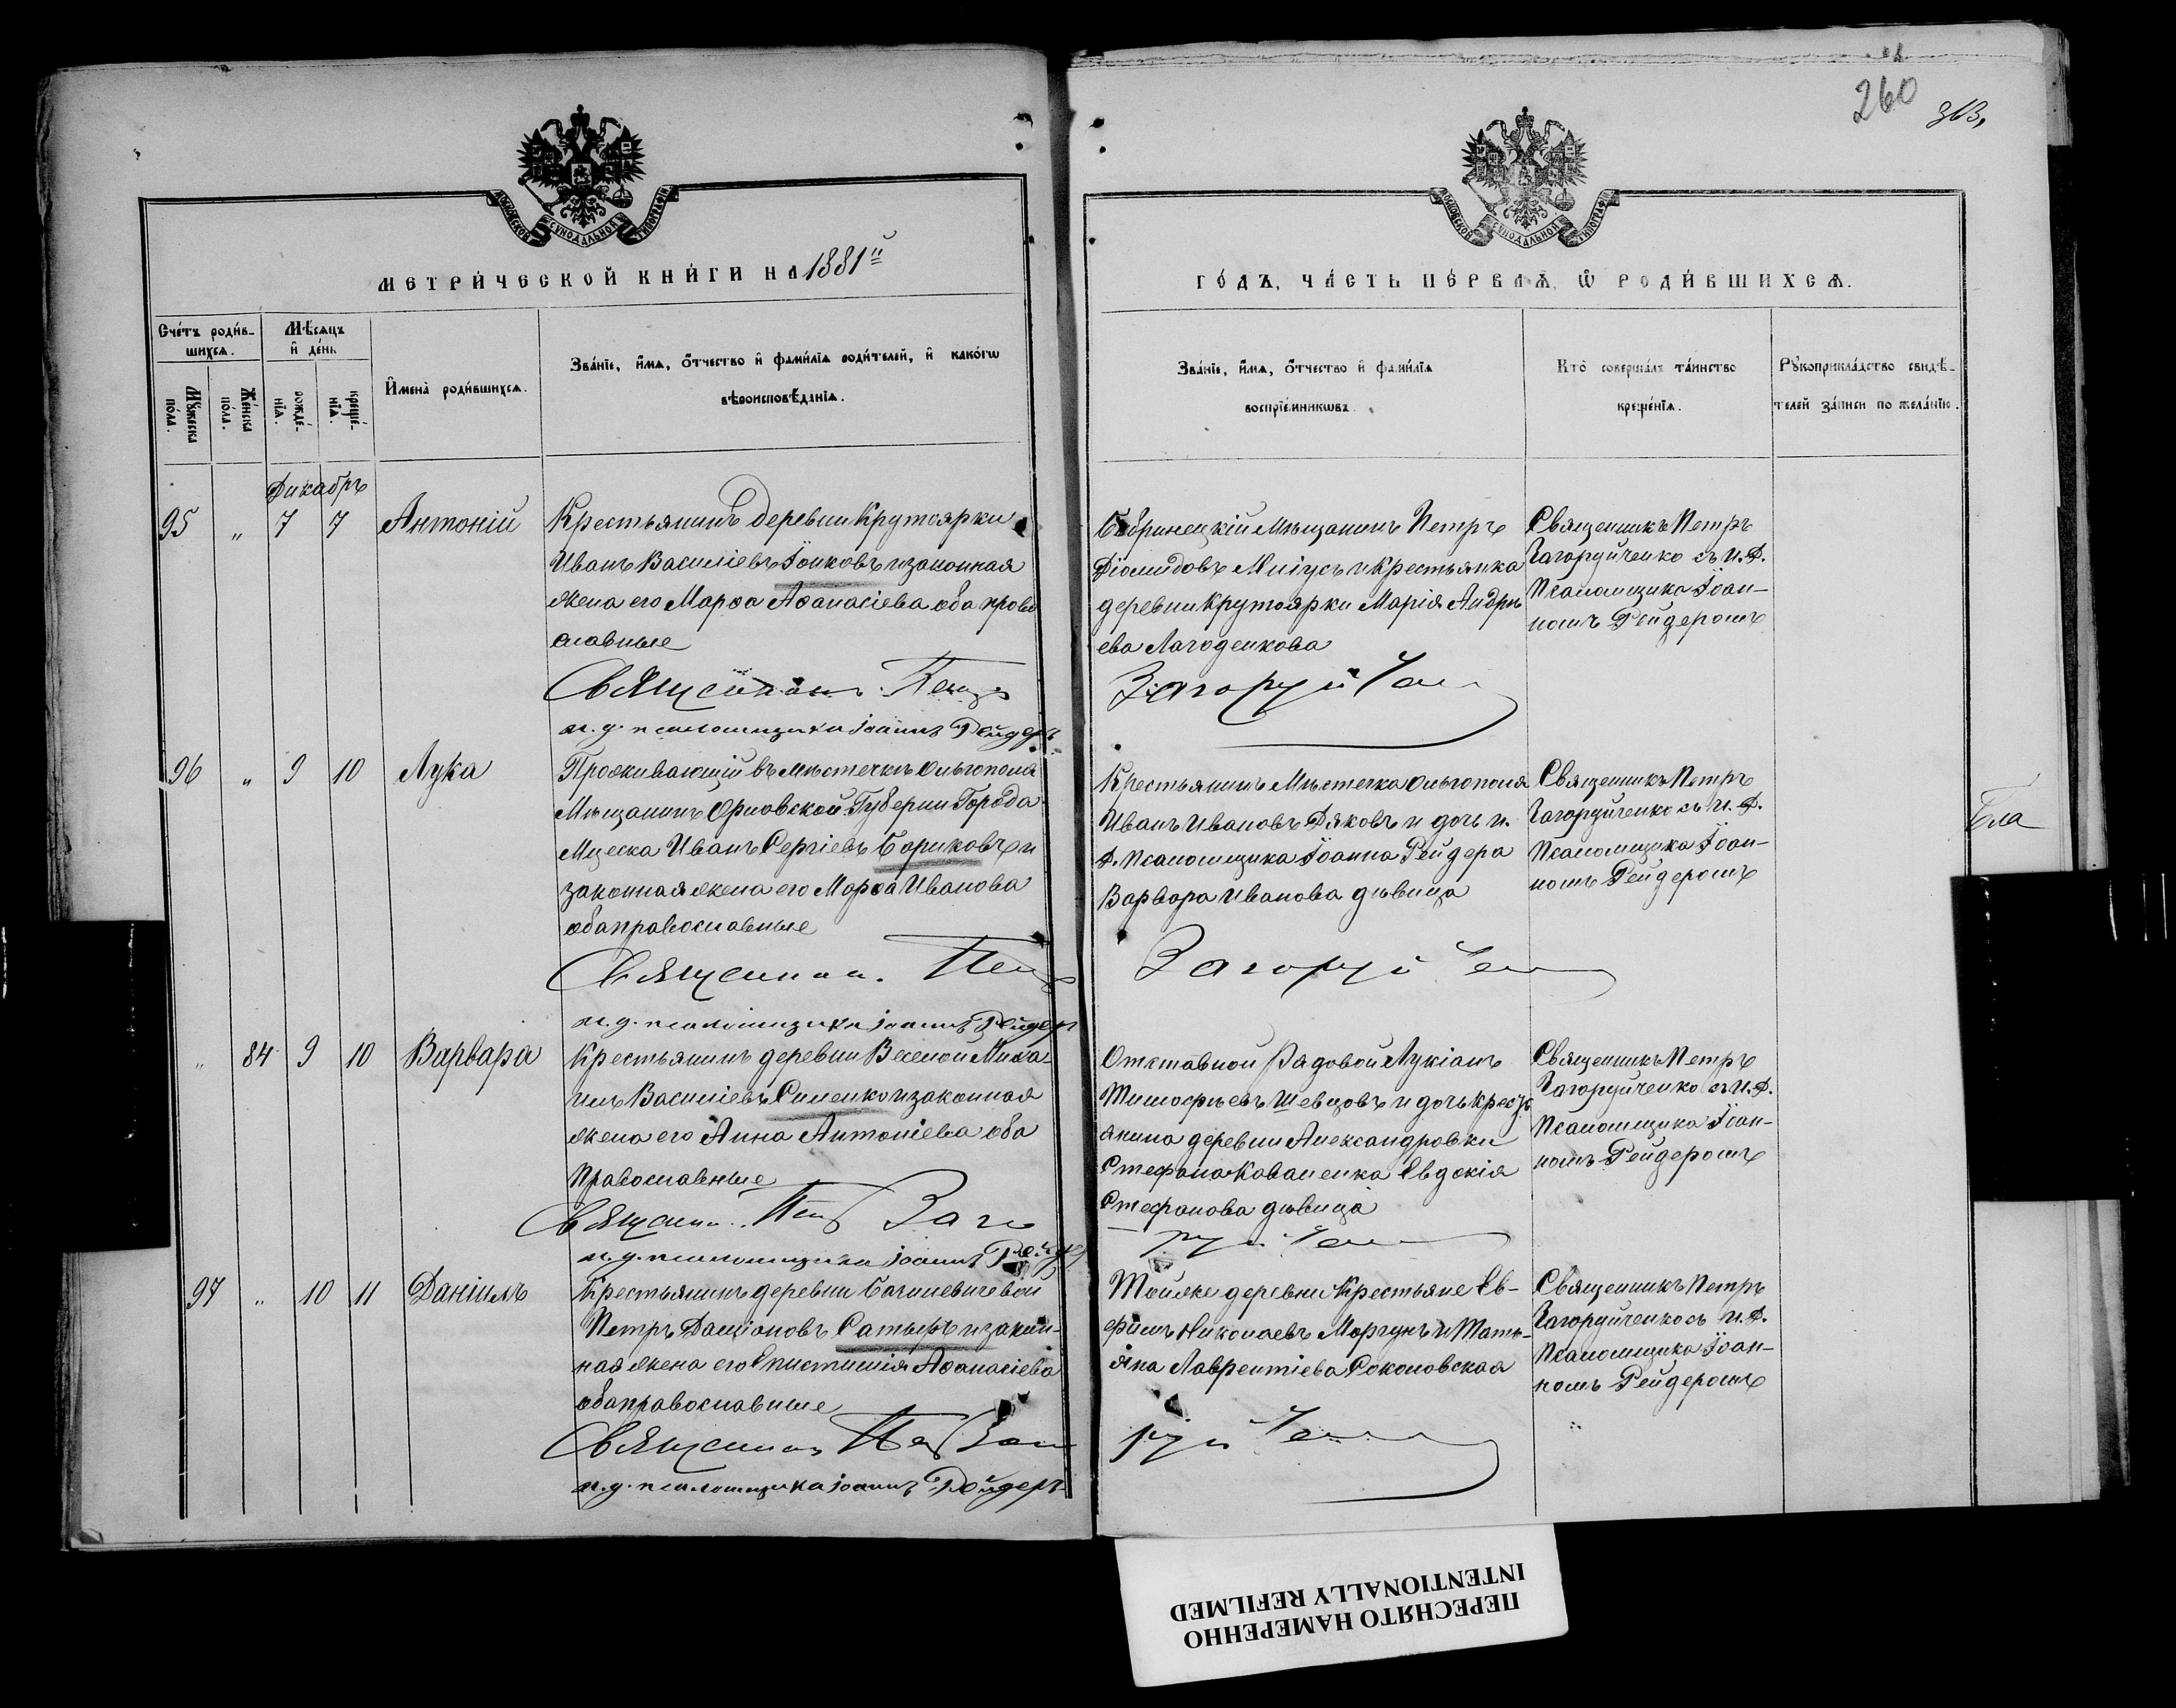 260
313,
МОСКОВСКОЙ СУНОДАЛЬНОЙ ТИПОГРАФІИ
МОСКОВСКОЙ СУНОДАЛЬНОЙ ТИПОГРАФІИ
МЕТРИ́ЧЕСКОЙ КНИ́ГИ НА 1881й
ГО́ДЪ, ЧА́СТЬ ПЕ́РВАѦ, Ѡ҆ РОДИ́ВШИХСѦ.
Сче́тъ роди́в-
шихсѧ.
Мѣ́сяцъ
и҆ де́нь
Мꙋ́жеска
по́ла.
Же́нска
по́ла.
рожде́-
нїѧ.
креще́-
нїѧ.
И҆мена̀ роди́вшихсѧ.
Зва́нїе, и҆́мѧ, ѻ҆́тчество и҆ фами́лїѧ роди́телей, и҆ како́гѡ
вѣроисповѣ́данїѧ.
Зва́нїе, и҆́мѧ, ѻ҆́тчество и҆ фами́лїѧ
воспрїе́мникѡвъ.
Кто̀ соверша́лъ та́инство
креще́нїѧ.
Рꙋкоприкла́дство свидѣ́-
телей за́писи по жела́нїю.
Дикабръ
95 " 7 7 Антоній
Крестьянинъ деревни Крутоярки
Иванъ Василіевъ и законная
жена его Марѳа Аѳанасіева оба право
славные
Священникъ Петръ
и.д. псаломщика Іоаннъ Рейдеръ
Бобринецкій Мѣщанинъ Петръ
Діомидовъ и Крестьянка
деревни Крутоярки Марія Андрѣ
ева Лагоденкова
Загоруйчен
Священникъ Петръ
Загоруйченко съ И. Д.
Псаломщика Іоан-
номъ Рейдеромъ
96 " 9 10 Лука
Проживающій въ Мѣстечкѣ Ольгополѣ
Мѣщанинъ Орловской Губерніи Города
Мценска Иванъ Сергіевъ Бориковъ и
законная жена его Марѳа Иванова
оба православные
Священник. Петръ
и.д. псаломщика Іоаннъ Рейдер
Крестьянинъ Мѣстечка Ольгополя
Иванъ Ивановъ Дяковъ и дочь и.
д. Псаломщика Іоанна Рейдера
Варвара Иванова дѣвица
Загоруйчен
Священникъ Петръ
Загоруйченко съ И. Д.
Псаломщика Іоан-
номъ Рейдеромъ
" 84 9 10 Варвара
Крестьянинъ деревни Веселой Миха-
илъ Василіевъ Силенко и законная
жена его Анна Антоніева оба
Православные
Священни.. Петр Заго
и.д. псаломщика Іоаннъ Рейдер
Отставной Рядовой Лукіанъ
Тимоѳѣевъ Шевцовъ и дочь крест
янина деревни Александровки
Стефана Коваленка Евдокія
Стефанова дѣвица
руйчен
Священникъ Петръ
Загоруйченко съ И. Д.
Псаломщика Іоан-
номъ Рейдеромъ
97 " 10 11 Даніилъ
Крестьянинъ деревни
Петръ Даміановъ Сатыръ и закон-
ная жена его Епистимія Аѳанасіева
оба православные
Священник Петр Заго
и.д. псаломщика Іоаннъ Рейдеръ
Той же деревни Крестьяне Ев-
фимъ Николаевъ Моргунъ и Тать-
яна Лаврентіева Соколовская
руйчен
Священникъ Петръ
Загоруйченко съ И. Д.
Псаломщика Іоан-
номъ Рейдеромъ
ПЕРЕСНЯТО НАМЕРЕННО
INTENTIONALLY REFILMED